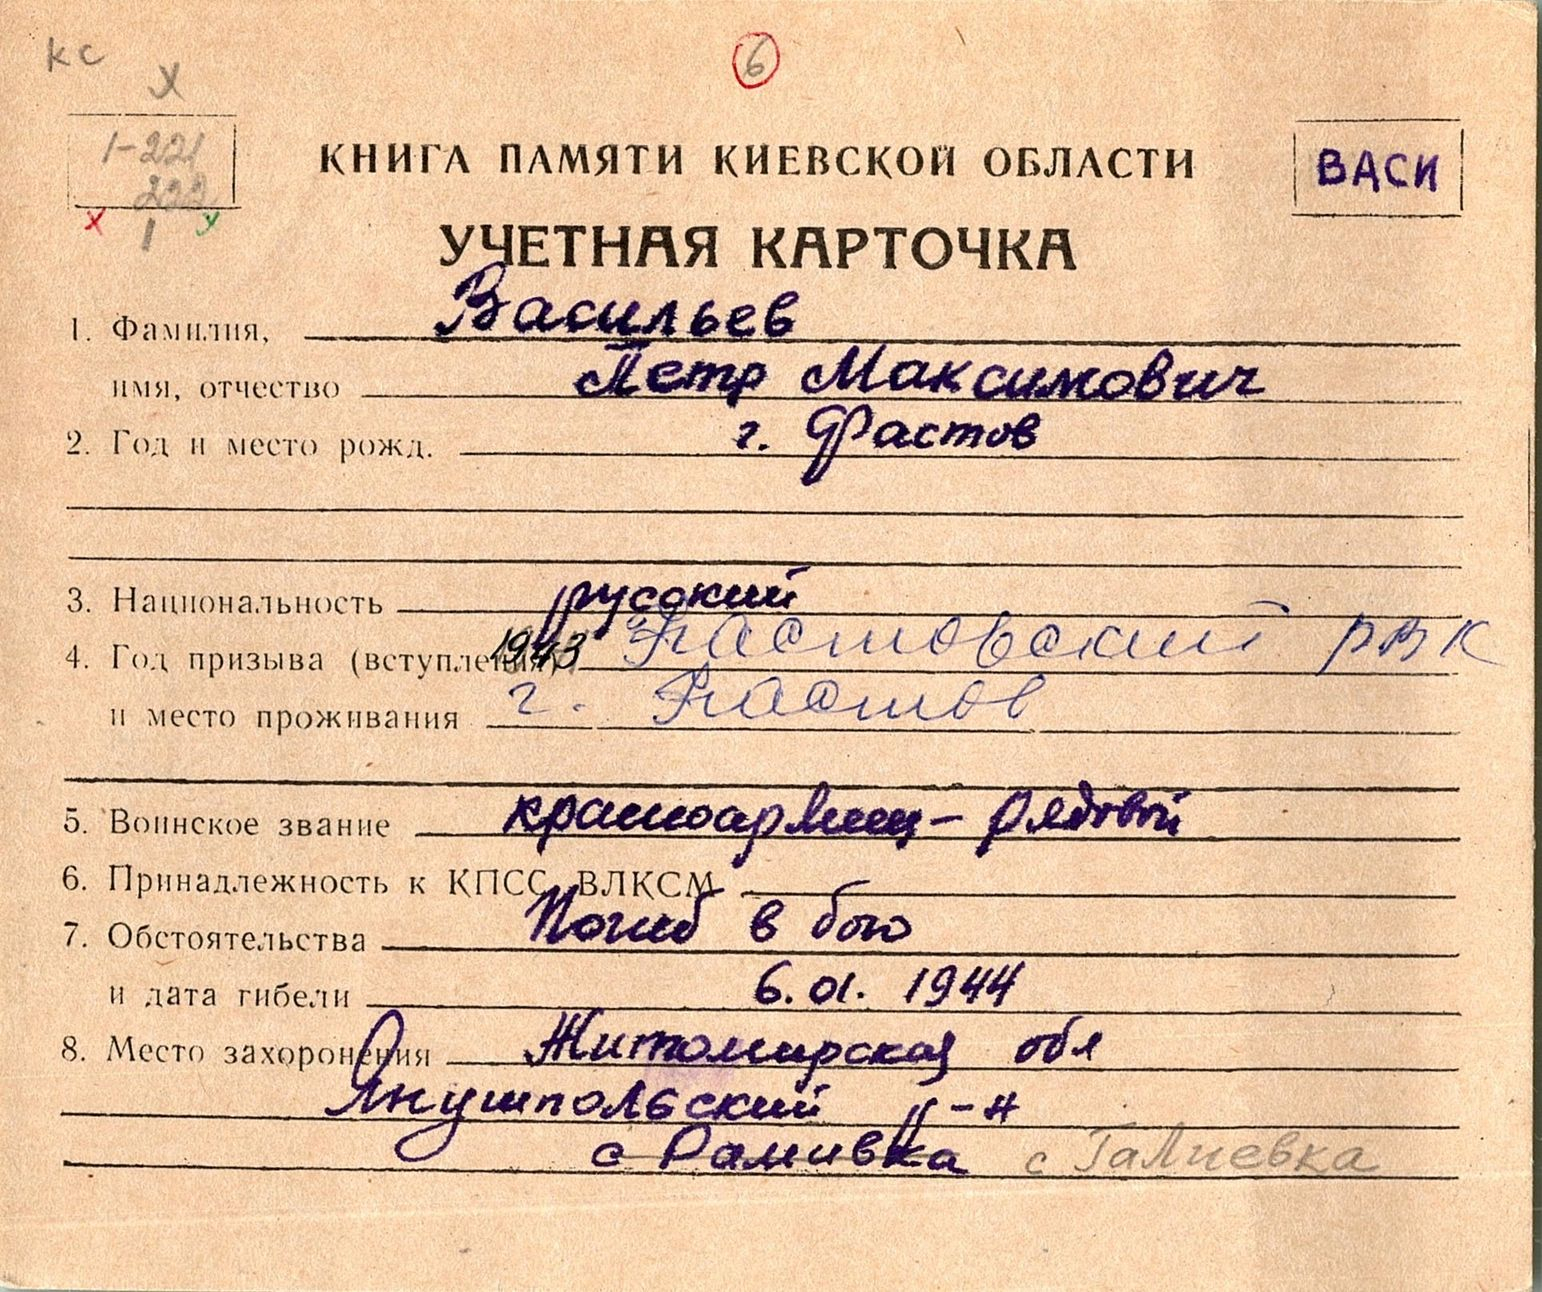 кс
х
6
1-221
222
х 1 у
КНИГА ПАМЯТИ КИЕВСКОЙ ОБЛАСТИ
ВАСИ
УЧЕТНАЯ КАРТОЧКА
1. Фамилия, Васильев
имя, отчество Петр Максимович
2. Год и место рожд. г. Фастов
3. Национальность русский
4. Год призыва (вступления) 1943 Фастовский РВК
и место проживания г. Фастов
5. Воинское звание красноармеец - рядовой
6. Принадлежность к КПСС, ВЛКСМ
7. Обстоятельства Погиб в бою
и дата гибели 6.01. 1944
8. Место захоронения Житомирская обл
Янушпольский р-н
с Рамивка с Галиевка